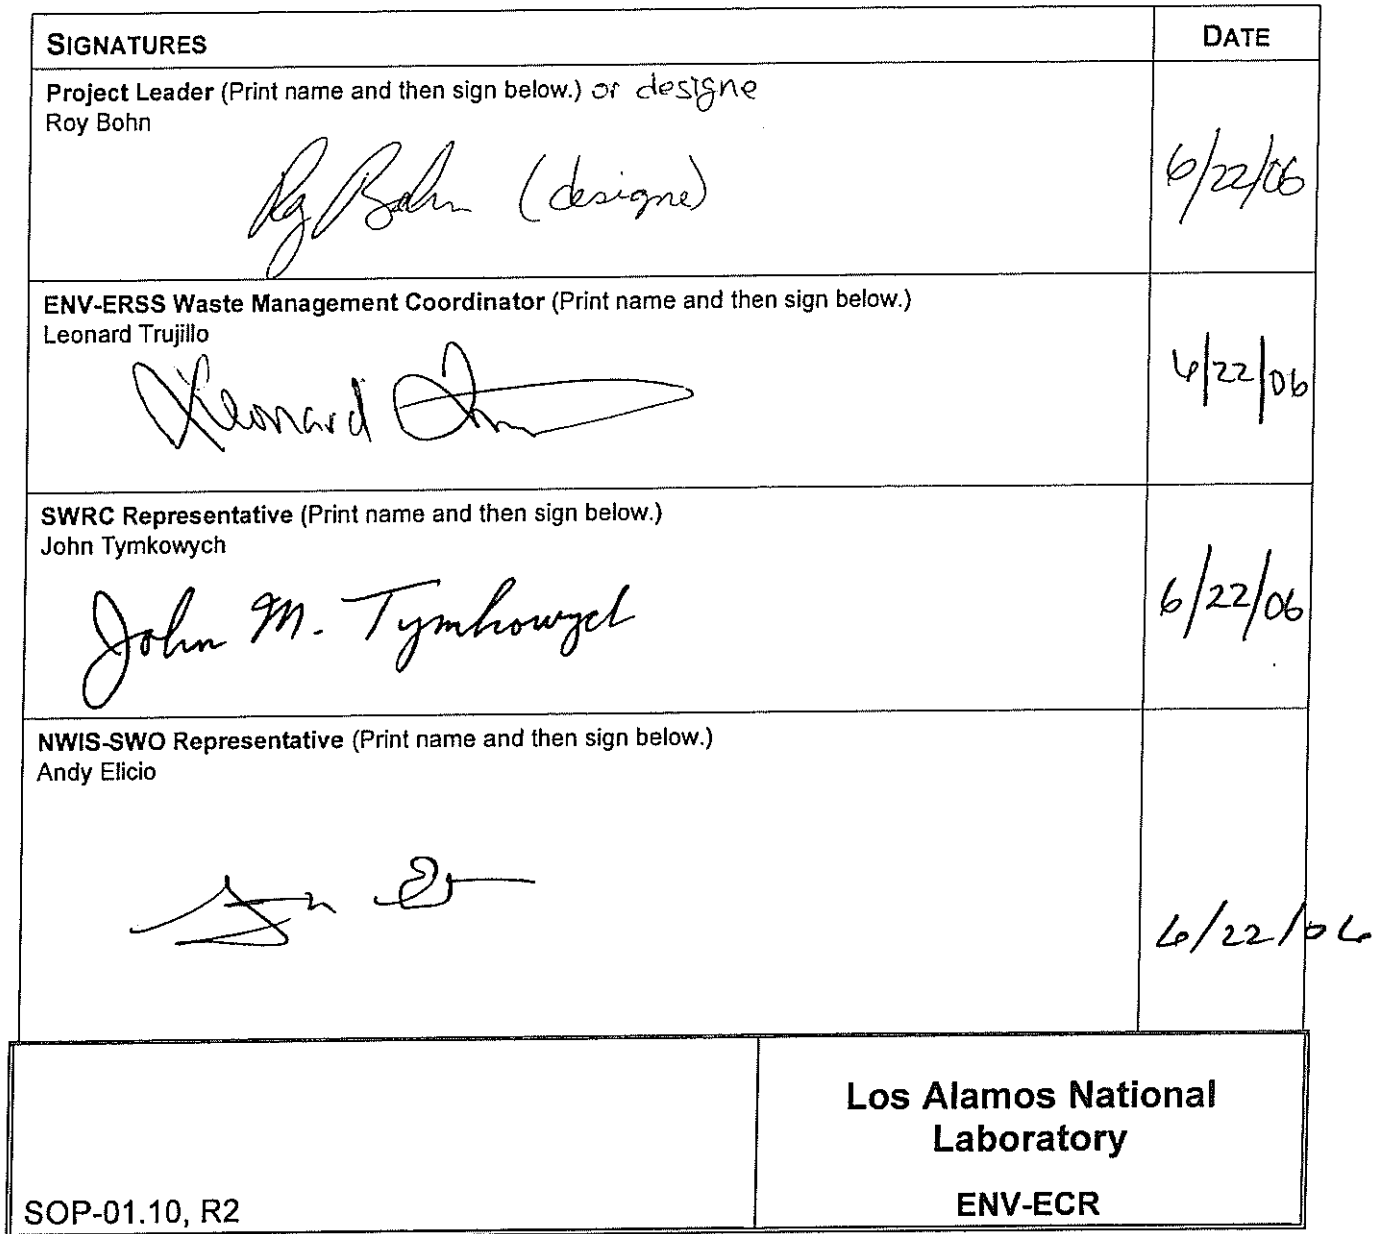 SIGNATURES
DATE
Project Leader (Print name and then sign below.) or designe
Roy Bohn
Roy Bohn (designe)
6/22/06
ENV-ERSS Waste Management Coordinator (Print name and then sign below.)
Leonard Trujillo
Leonard
6/22/06
SWRC Representative (Print name and then sign below.)
John Tymkowych
John M. Tymkowych
6/22/06
NWIS-SWO Representative (Print name and then sign below.)
Andy Elicio
6/22/06
Los Alamos National
Laboratory
SOP-01.10, R2
ENV-ECR